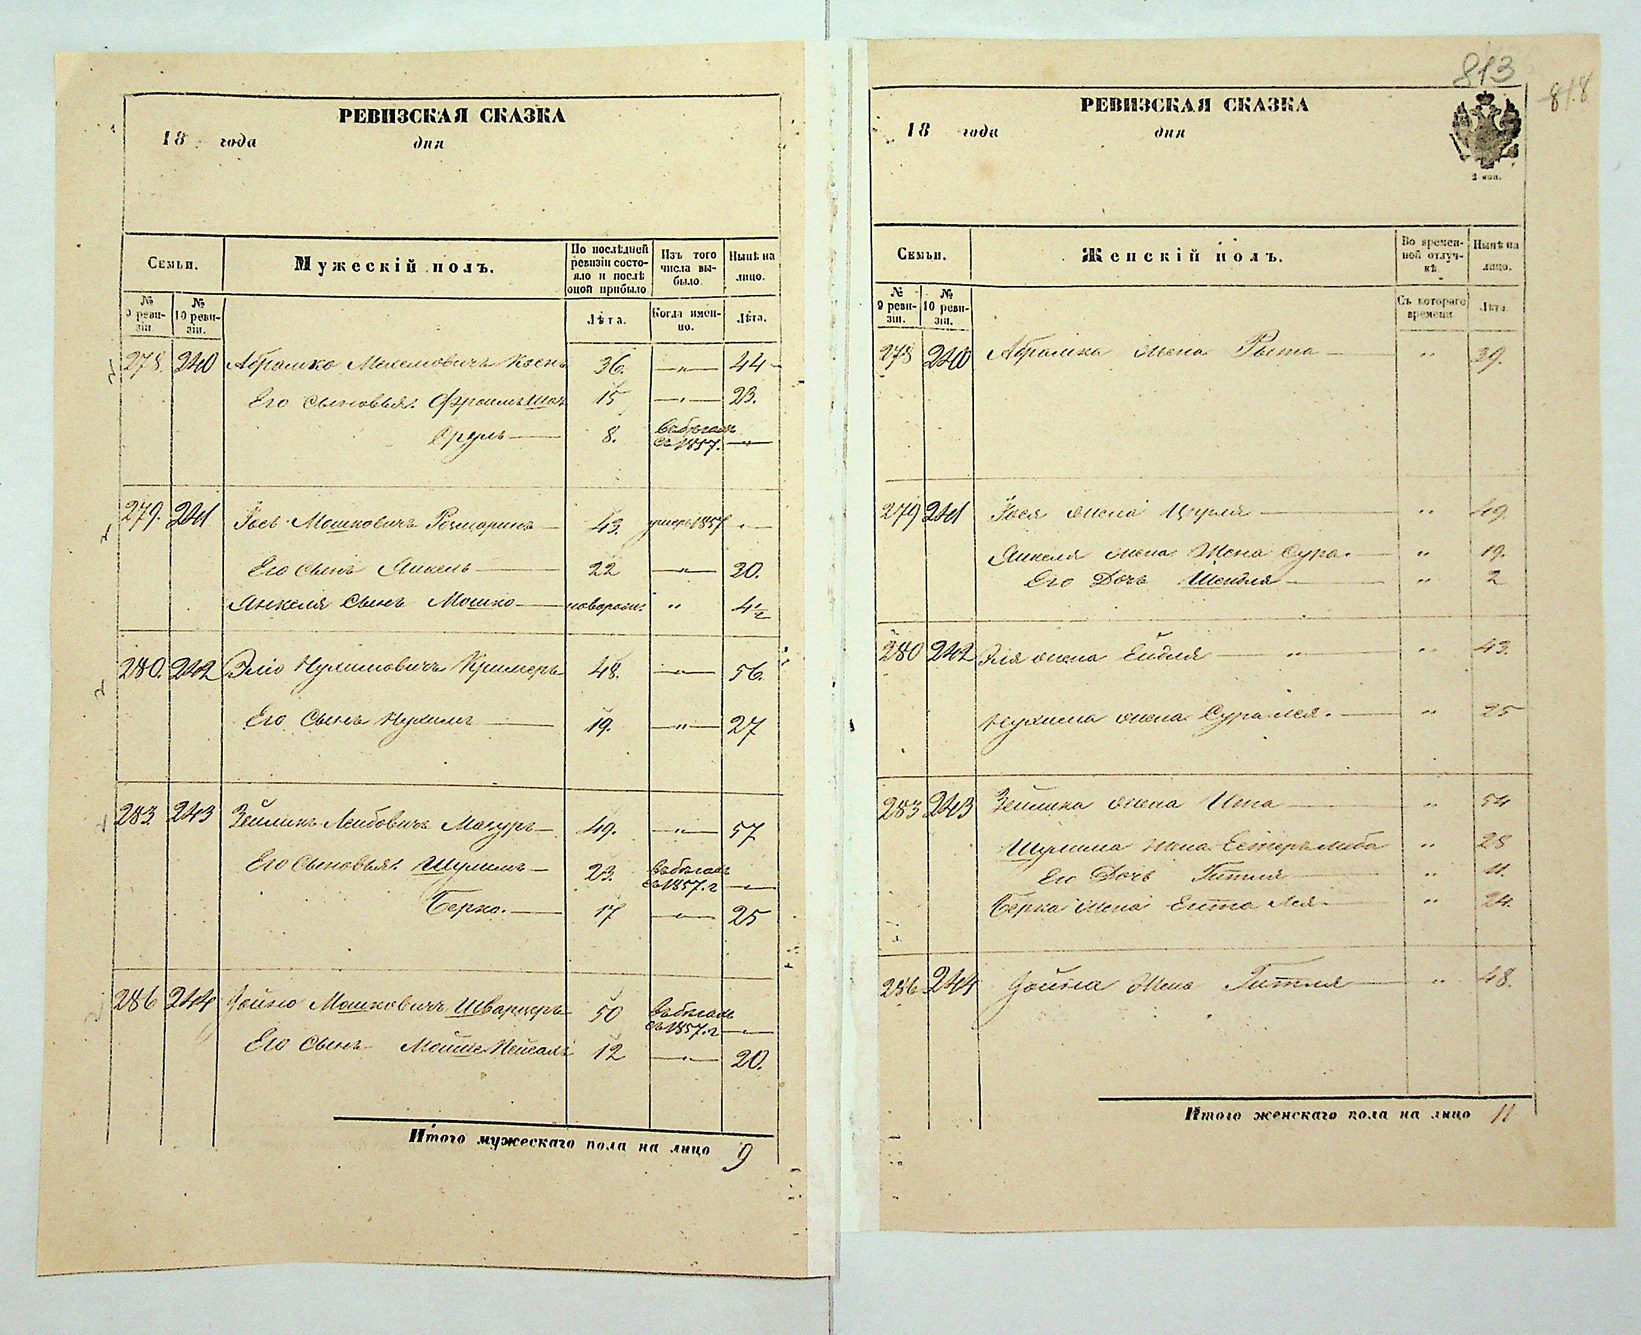 РЕВИЗСКАЯ СКАЗКА
18 года дня
Семьи.
Мужескій полъ.
По послѣдней ревизіи состояло и послѣ оной прибыло
Изъ того числа выбыло.
Нынѣ на лицо.
№ 9 ревизіи.
№ 10 ревизіи.
Лѣта.
Когда именно.
Лѣта.
278. 240 Абрамко 36. — „ — 44
Его сыновья: Фроимъ 15 — „ — 23.
Сруль 8. въ бѣгахъ съ 1857. —
279. 241 Іось Мошковичъ Розмаринъ 43. умеръ 1857 —
Его сынъ Янкель 22 — „ — 30.
Янкеля сынъ Мошко новорожд: „ 4½
280. 242 Эліо Кримеръ 48. — „ — 56.
Его сынъ Нухимъ 19. — „ — 27
283. 243 Зейликъ Лейбовичъ Мазуръ 49. — „ — 57
Его сыновья: Шулимъ 23. въ бѣгахъ съ 1857. г —
Берко. 17 — „ — 25
286 244 Іойно Мошковичъ Шварцеръ 50 въ бѣгахъ съ 1857. г —
Его сынъ 12 — „ — 20.
Итого мужескаго пола на лицо 9
813
818
РЕВИЗСКАЯ СКАЗКА
18 года дня
2 коп.
Семьи.
Женскій полъ.
Во временной отлучкѣ
Нынѣ на лицо.
№ 9 ревизіи.
№ 10 ревизіи.
Съ котораго времени
Лѣта.
278 240 Абрамка жена — „ 39.
279 241 Іося жена Цирля — „ 49.
Янкеля жена Сура. — „ 19.
Его дочь Шейдля — „ 2
280 242 Эля жена Ейдля — „ 43.
Нухима жена Сура Лея. — „ 25
283 243 Зейлика жена Ита — „ 54
Шулима жена Естеръ Либа „ 28
Его дочь Гитля — „ 11.
Берка жена Ента Лея — „ 24.
286 244 Іойна жена Гитля — „ 48.
Итого женскаго пола на лицо 11